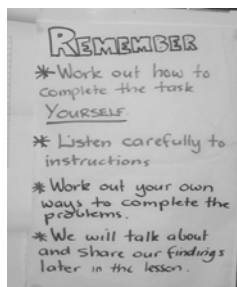 REMEMBER
* Work out how to
complete the task
YOURSELF.
* Listen carefully to
instructions
* Work out your own
ways to complete the
problems.
* We will talk about
and share our findings
later in the lesson.